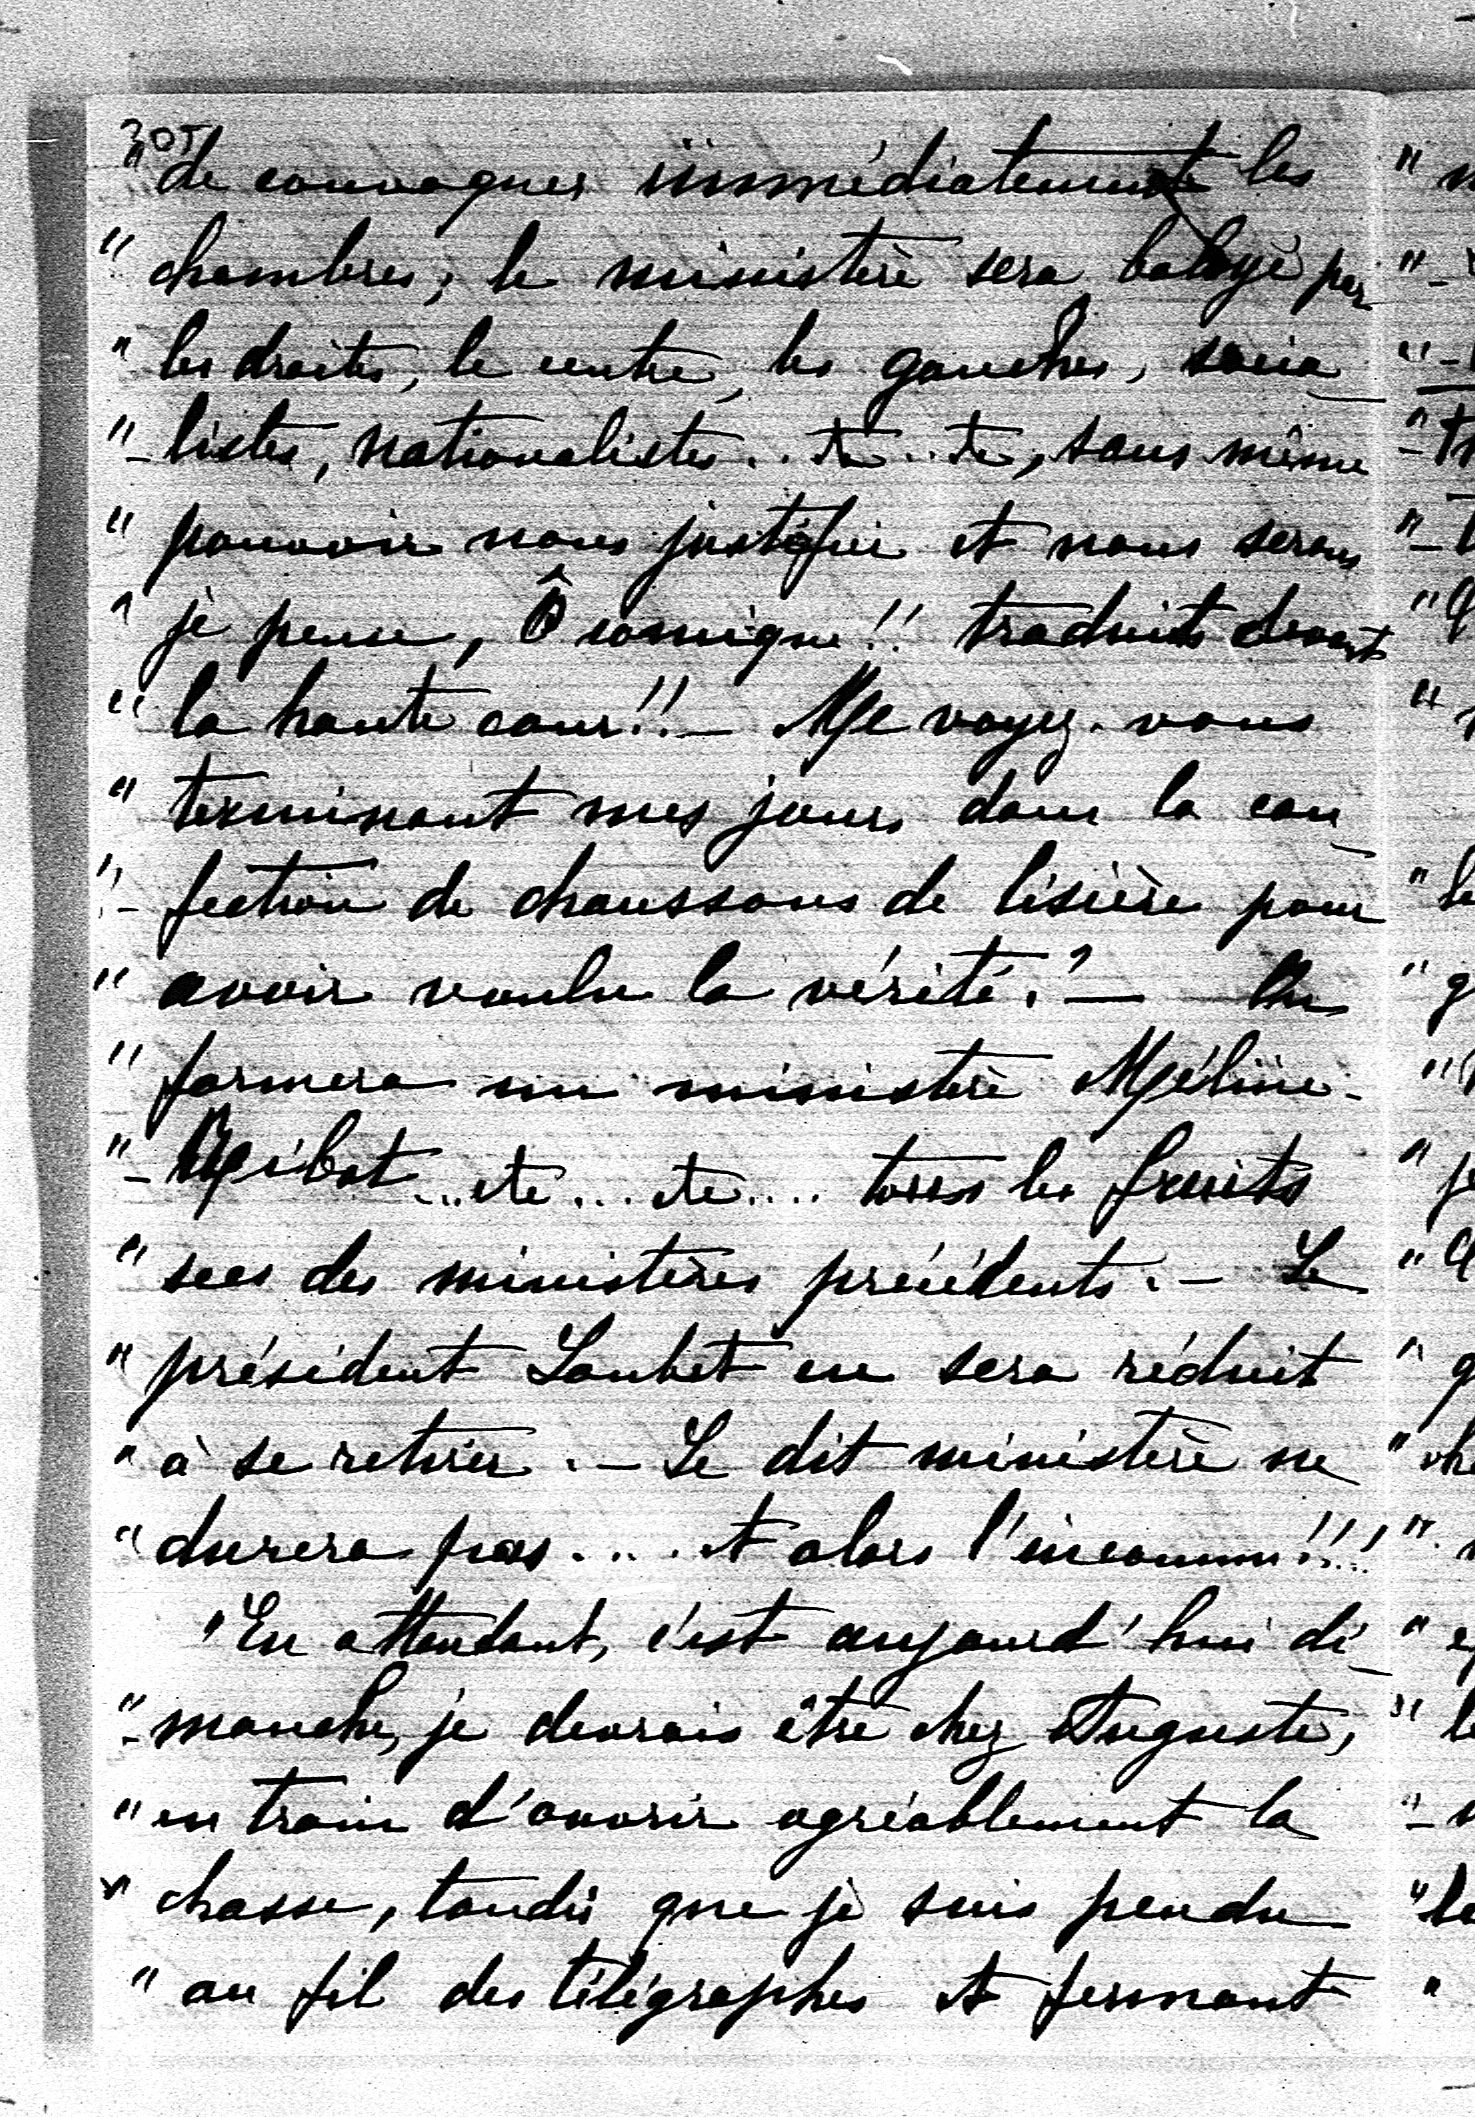 305
" de convoquer immédiatement les
" chambres; le ministère sera balayé par
" les droites, le centre, les gauches, socia_
"_ listes, nationalistes.. etc.. etc, sans même
" pouvoir nous justifier et nous serons
" je pense, Ô comique!! traduits devant
" la haute cour!!_ Me voyez-vous
" terminant mes jours dans la con_
"_ fection de chaussons de lisière pour
" avoir voulu la vérité?_ On
" formera un ministère Méline-
"_ Ribot...etc...etc.... tous les fruits
" secs des ministères précédents._ Le
" président Loubet en sera réduit
" à se retirer._ Le dit ministère ne
" durera pas.... et alors l'inconnu!!!
" En attendant, c'est aujourd'hui di_
"_ manche, je devrais être chez Auguste,
" en train d'ouvrir agréablement la
" chasse, tandis que je suis pendu
" au fil des télégraphes et fermant